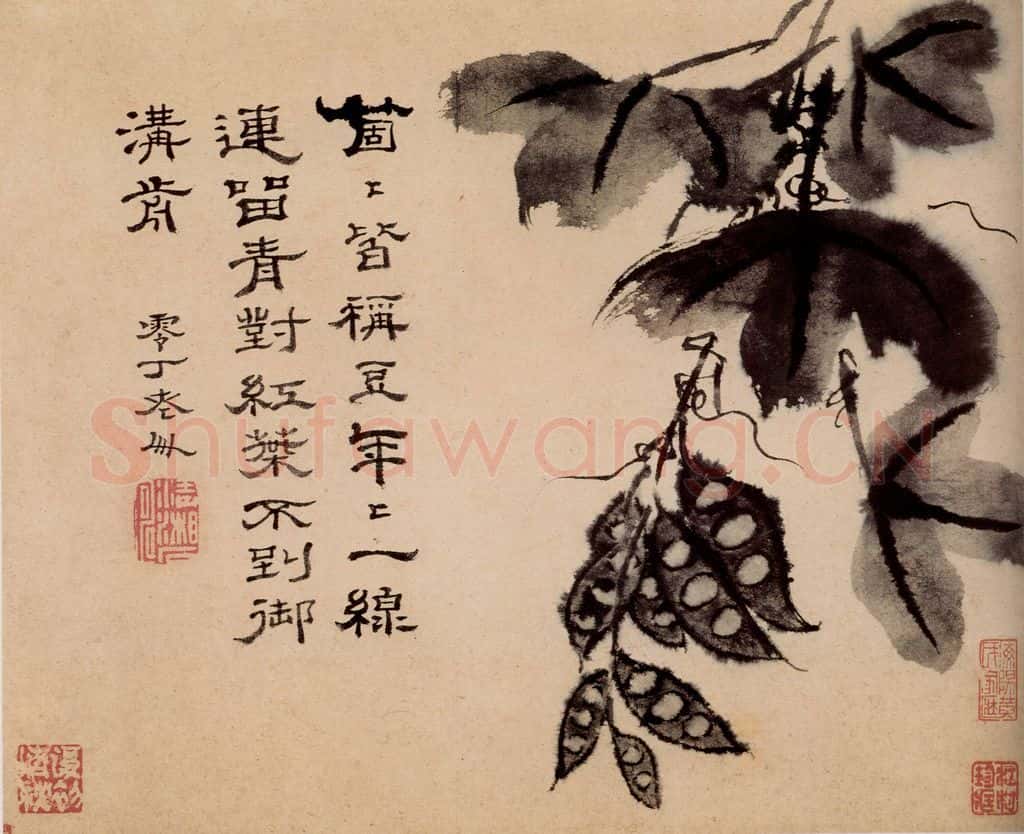 箇〻皆稱豆年〻一線
連留青對紅葉不到御
溝前
零丁老
Shufawang.CN